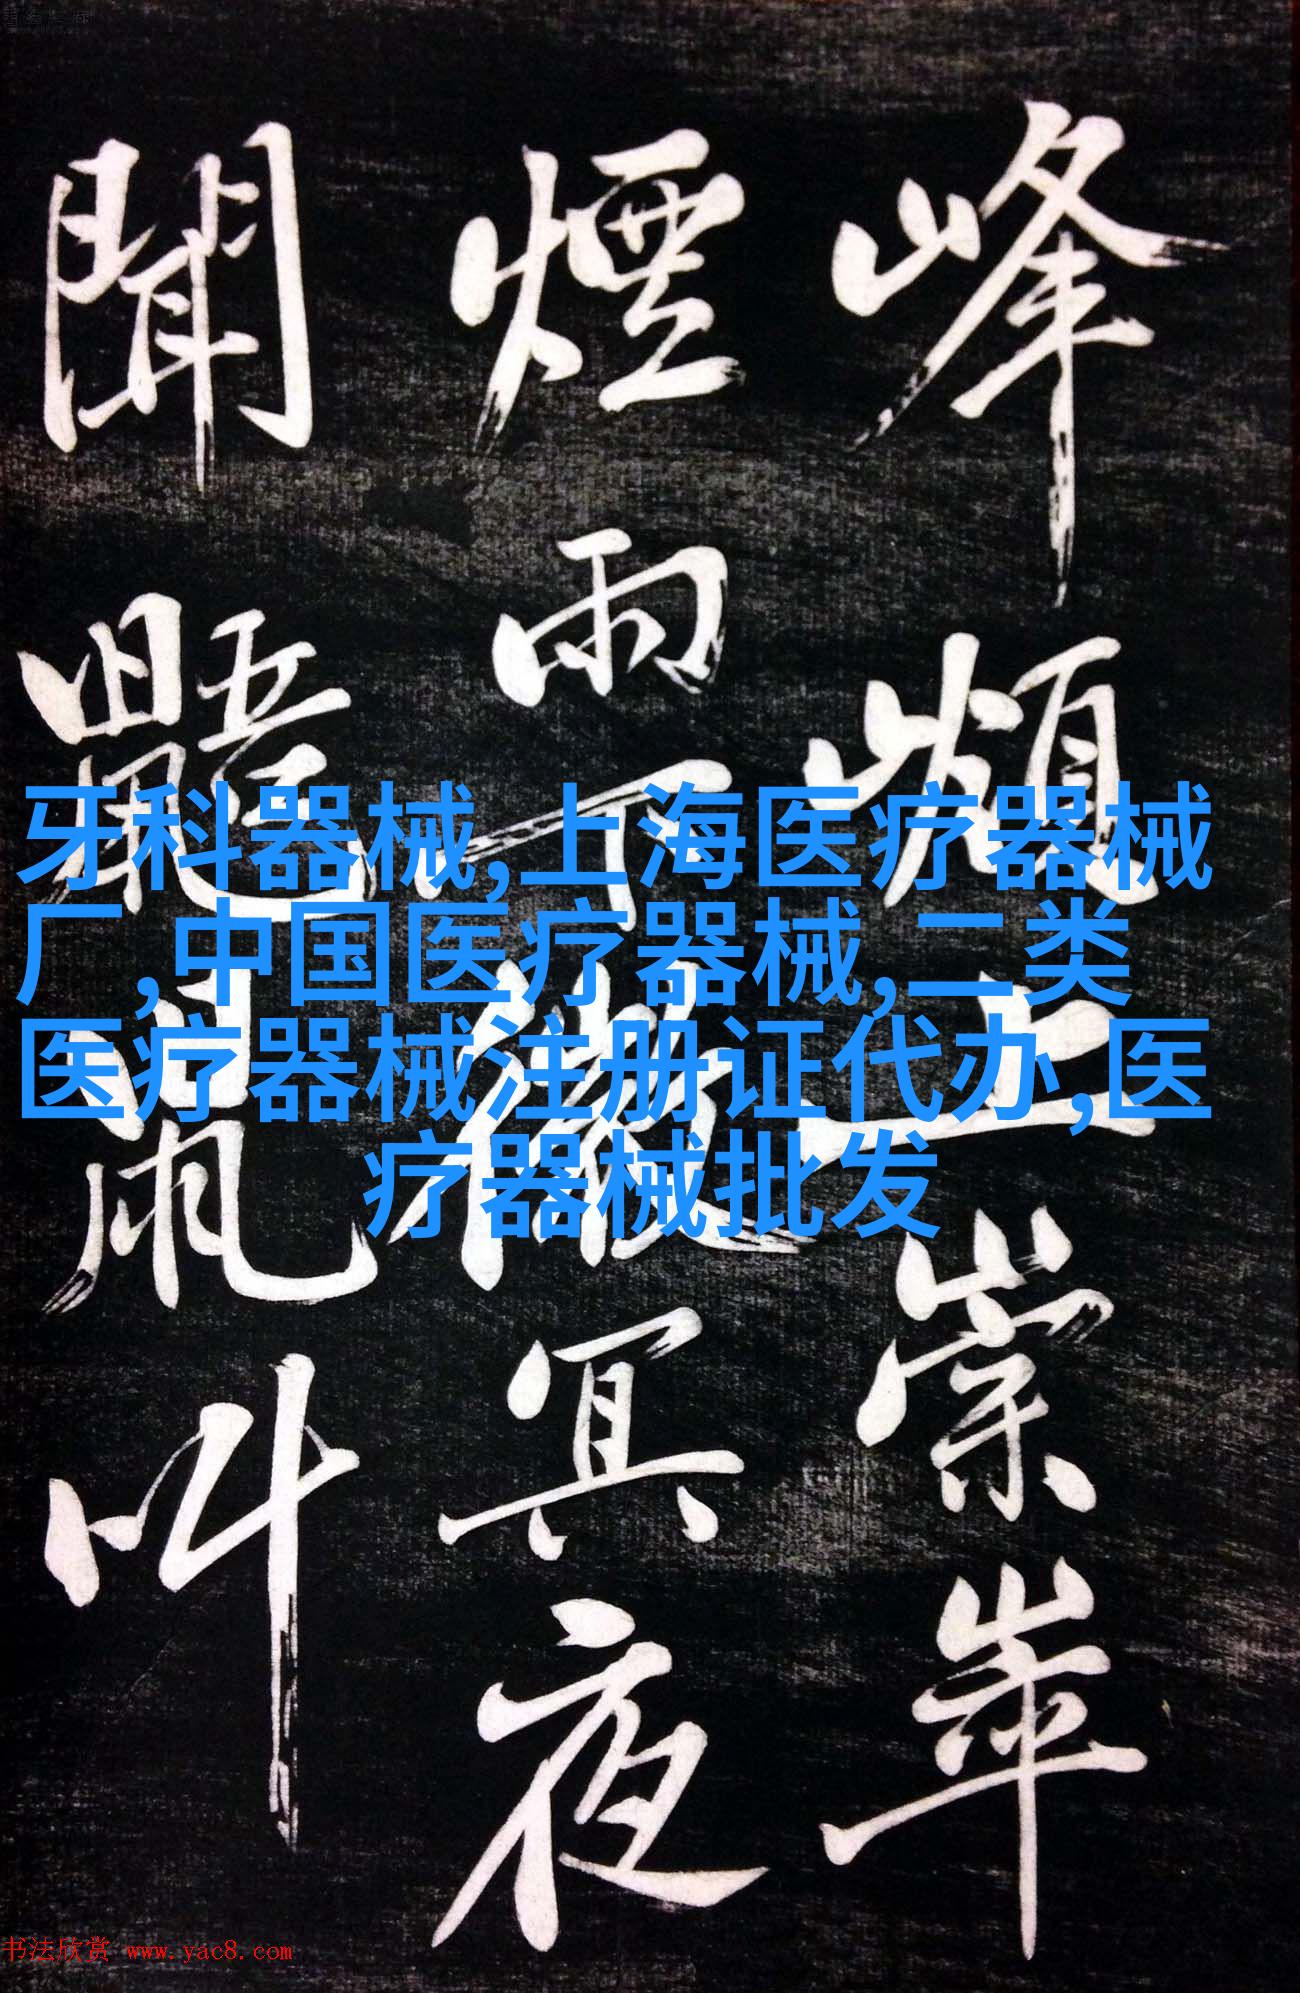 峰上崇崒
煙雨下微冥夜
聞鼯鼠叫
牙科器械,上海医疗器械
厂,中国医疗器械,二类
医疗器械注册证代办,医
疗器械批发
书法欣赏 www.yac8.com